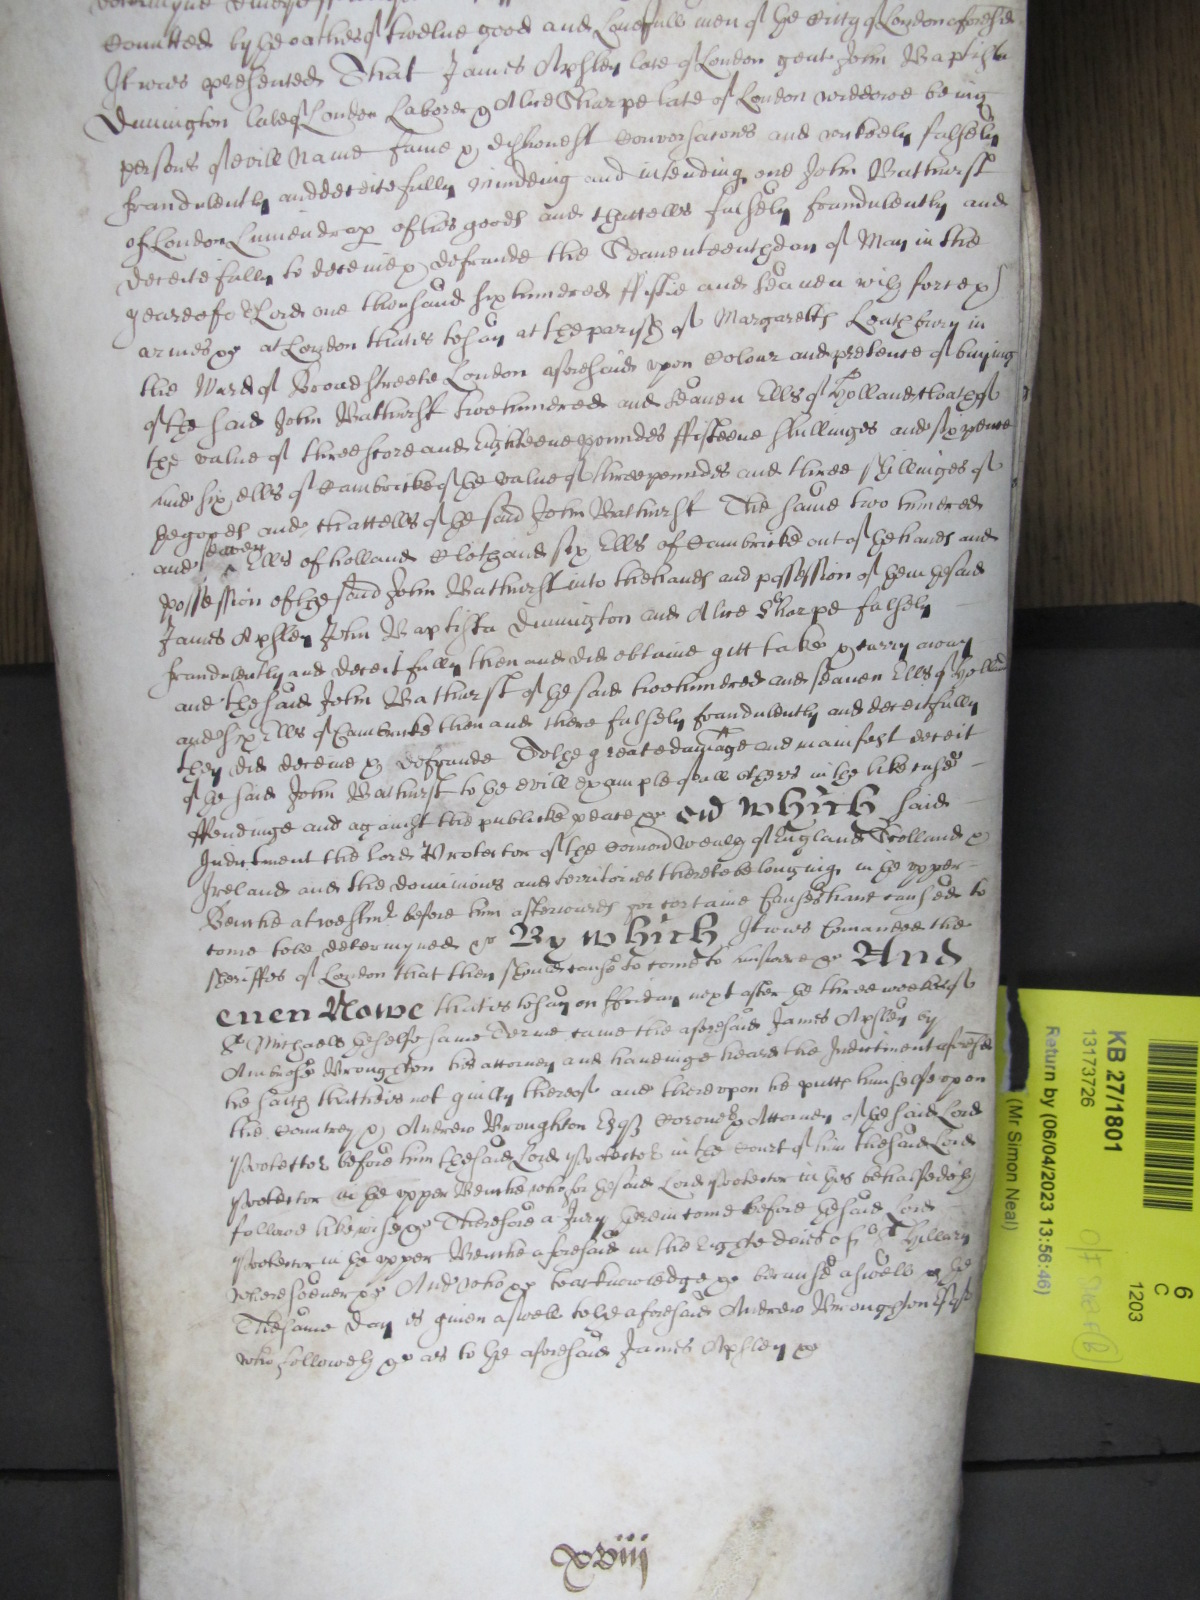 Comitted by the oathes of twelve good and Lawfull men of the Citty of London aforesaid
It was presented That James Apsley late of London gent John Baptista
Dunington late of London Laborer & Alice Sharpe late of London widdowe being
persons of evill Name fame & dishonest Conversacons and wickedly falsely
fraudulently and deceitefully minding and intending one John Bathurst
of London Linnendrap of his goods and Chattells falsely fraudulently and
deceitefully to deceive & defraude the Seaventeenth day of May in the
yeare of o Lord one thousand six hundred fiftie and seaven with force &
armes &c at London that is to say at the parish of Margaretts Loathbury in
the Ward of Broadstreete London aforesaid upon Colour and pretence of buying
of the said John Bathurst two hundred and seaven Ells of Holland Cloath of
the value of threescore and Eighteene poundes ffifteene shillinges and six pence
And six ells of Cambricke of the value of three poundes and three shillinges of
the goodes and Chattells of the said John Bathurst The same two hundred
and seaven Ells of holland Cloth and six Ells of Cambricke out of the hands and
possession of the said John Bathurst into the hands and possession of them the said
James Apsley John Baptista Dunington and Alice Sharpe falsely
fraudulently and deceitfully then and did obtaine gitt take & carry away
and the said John Bathurst of the said two hundred and seaven Ells of Holland
and six Ells of Cambricke then and there falsely fraudulently and deceitfully
they did deceive & defraude To the greate damage and manifest deceit
of the said John Bathurst to the evill example of all others in the like case
ffendinge and against the publicke peace &c which said
Indictment the Lord Protector of the Comonwealth of England Scotland &
Ireland and the dominions and territories thereto belonging in the upper
Benche at westmr before him afterwards for certaine Causes have caused to
come to be determyned &c By which It was Comanded the
Sheriffes of London that they should cause to come to Answere &c And
even Nowe that is to say on ffriday next after the three weekes of
St Michaell the selfe same Terme came the aforesaid James Apsley by
Ambrose Broughton his attorney and havinge heard the Indictment aforesd
he saith that he is not guilty thereof and thereupon he putts himselfe upon
the Countrey & Andrew Broughton Esqr Coroner & Attorney of the said Lord
Protector before him the said Lord Protector in the Court of him the said Lord
Protector in the upper Benche who for the said Lord Protector in this behalfe doth
followe likewise &c Therefore a Jury therein come before the said Lord
Protector in the upper Benche aforesaid in the Eighte daies of St Hillary
wheresoever &c And who &c to acknowledge &c because aswell &c the
The same day is given aswell to the aforesaid Andrew Broughton Esqr
who followeth &c as to the aforesaid James Apsley &c
xviii
KB 27/1801
13173726
Return by (06/04/2023 13:56:46)
(Mr Simon Neal)
6
C
1203